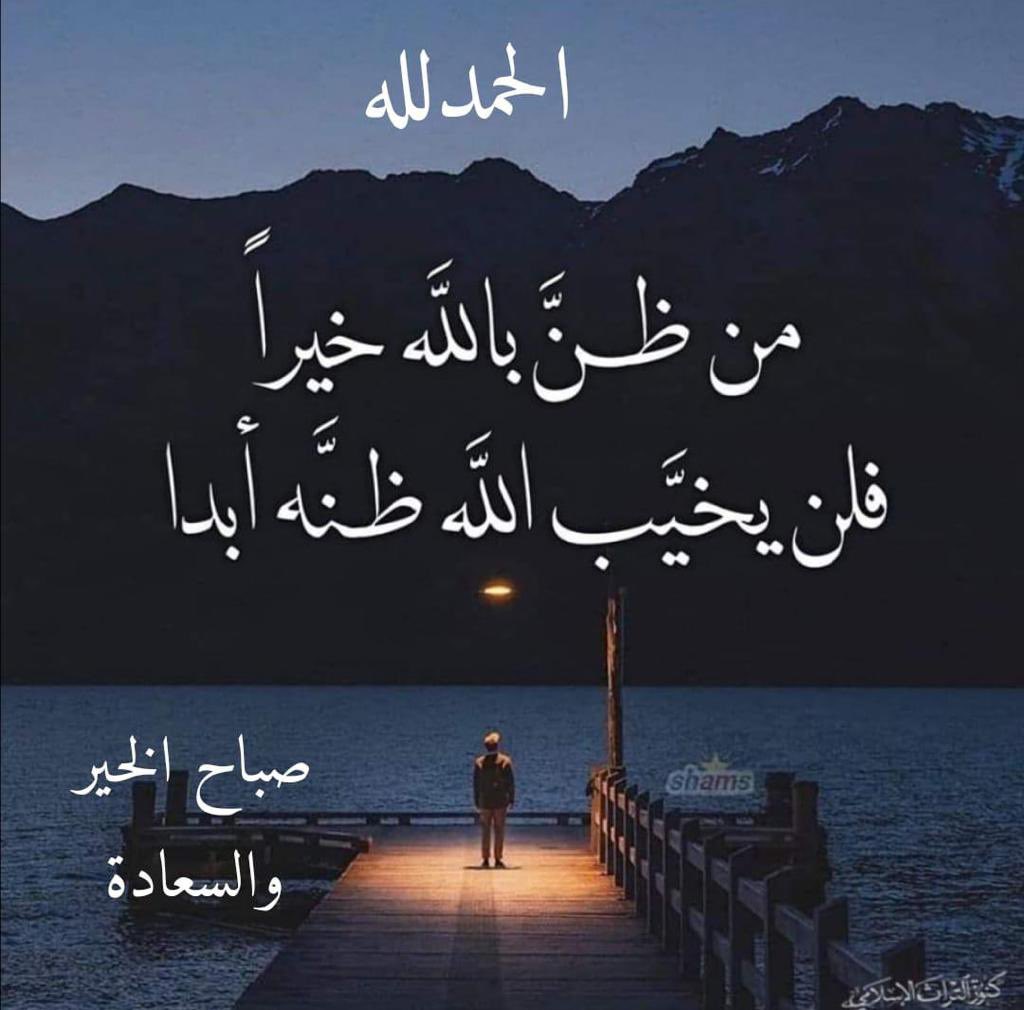 الحمدلله
من ظنَّ باللَّه خيراً
فلن يخيَّب اللَّه ظنَّه أبدا
صباح الخير
والسعادة
shams
كنوز التراث الإسلامي